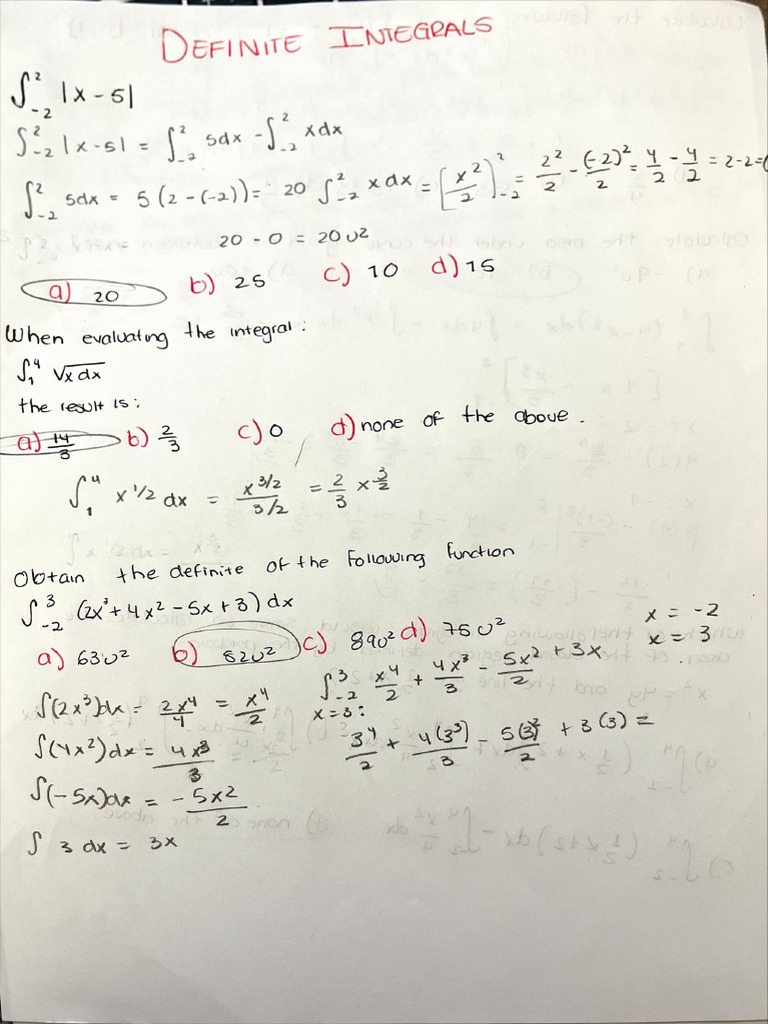 DEFINITE INTEGRALS
∫₋₂² |x - 5|
∫₋₂² |x - 5| = ∫₋₂² 5dx - ∫₋₂² xdx
∫₋₂² 5dx = 5(2-(-2)) = 20 ∫₋₂² xdx = [x²/2]₋₂² = 2²/2 - (-2)²/2 = 4/2 - 4/2 = 2-2=0
20 - 0 = 20u²
a) 20 b) 25 c) 10 d) 15
When evaluating the integral:
∫₁⁴ √x dx
the result is:
a) 14/3 b) 2/3 c) 0 d) none of the above.
∫₁⁴ x^1/2 dx = x^3/2 / 3/2 = 2/3 x^3/2
Obtain the definite of the following function
∫₋₂³ (2x³ + 4x² - 5x + 3) dx
x = -2
x = 3
a) 63u² b) 82u² c) 89u² d) 75u²
∫(2x³)dx = 2x⁴/4 = x⁴/2
∫₋₂³ x⁴/2 + 4x³/3 - 5x²/2 + 3x
x = 3:
∫(4x²)dx = 4x³/3
3⁴/2 + 4(3³)/3 - 5(3)²/2 + 3(3) =
∫(-5x)dx = -5x2/2
∫ 3 dx = 3x